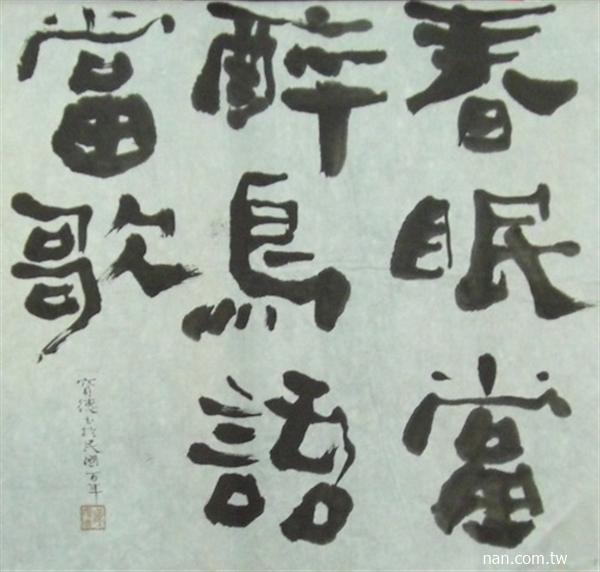 春眠當
醉鳥語
當歌
寶德書於民國百年
nan.com.tw